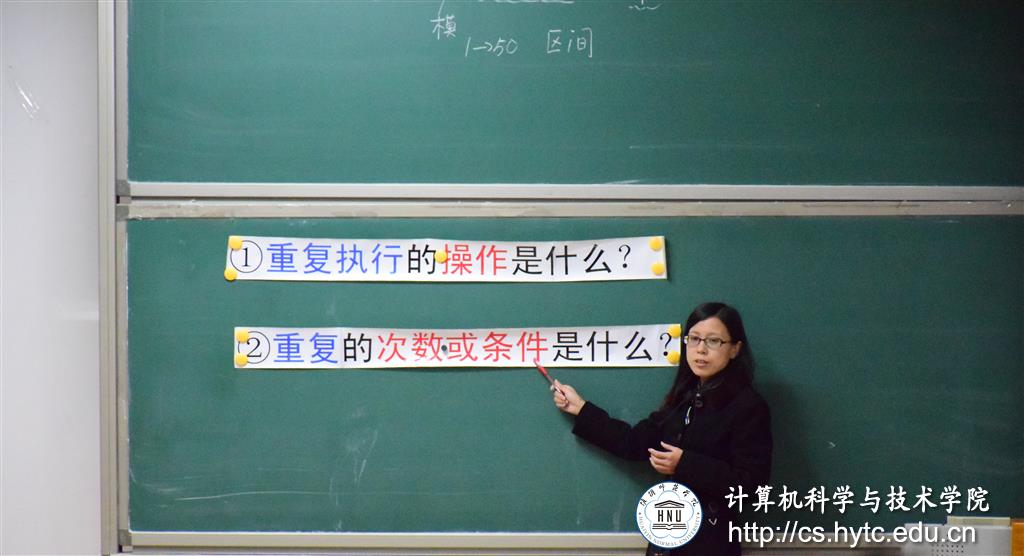 模
1→50 区间
①重复执行的操作是什么?
②重复的次数或条件是什么?
HNU
计算机科学与技术学院
http://cs.hytc.edu.cn